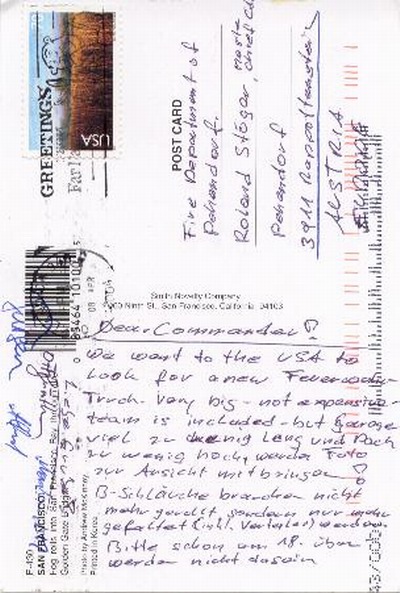 USA
GREETINGS
POST CARD
Fire Department of
Pehendorf
Roland Stöger,
Pehendorf
3911 Rappottenstein
AUSTRIA
EUROPE
Smith Novelty Company
Ninth St., San Francisco, California 94103
03464 10100
Dear Commander!
We want to the USA to
look for a new Feuerwehr-
Truck. Very big - not expensive -
team is included - but Garage
viel zu wenig Lang und Dach
zu wenig hoch, werde Foto
zur Ansicht mitbringen!
B-Schläuche brauchen nicht
mehr gerollt sondern nur mehr
gefaltet (inkl. Verteiler) werden.
Bitte schon am 18. üben
werden nicht da sein
SAN FRANCISCO,
Fog rolls into San Francisco Bay
Golden Gate
Photo by Andrew McKinney
Printed in Korea